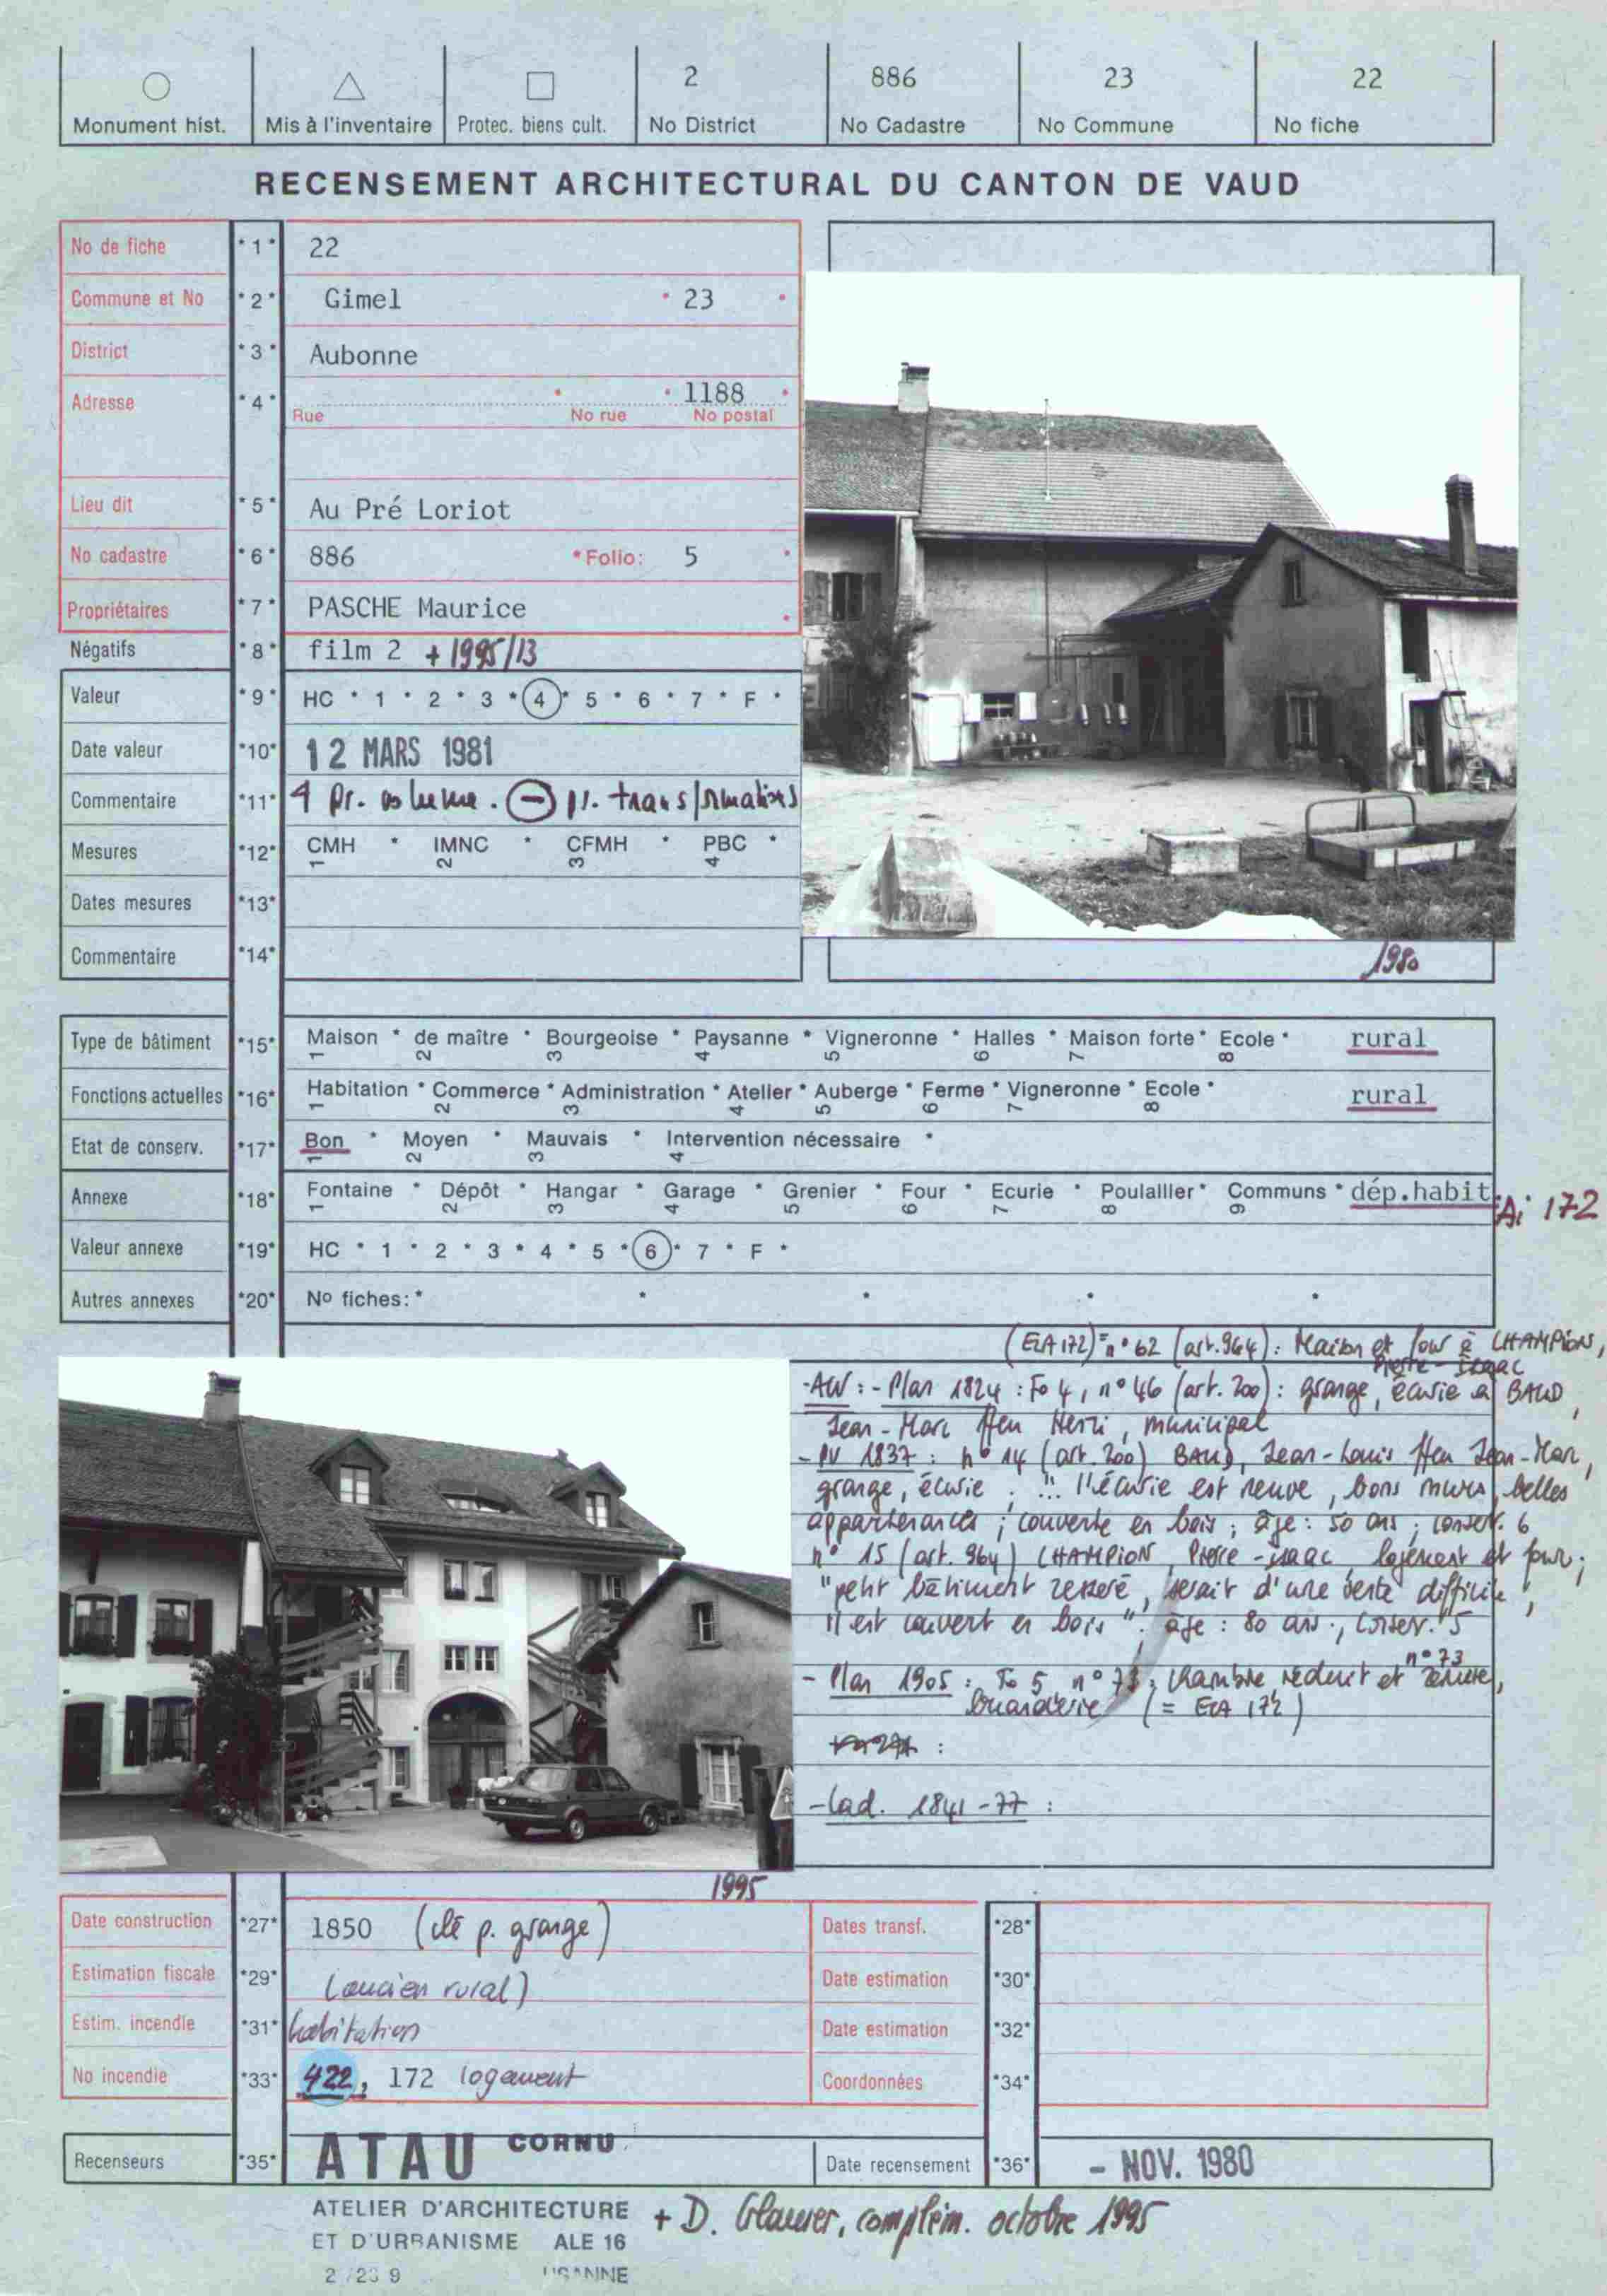 2 886 23 22
Monument hist. Mis à l'inventaire Protec. biens cult. No District No Cadastre No Commune No fiche
RECENSEMENT ARCHITECTURAL DU CANTON DE VAUD
No de fiche *1* 22
Commune et No *2* Gimel * 23 *
District *3* Aubonne
Adresse *4* * * 1188 *
Rue No rue No postal
Lieu dit *5* Au Pré Loriot
No cadastre *6* 886 *Folio: 5 *
Propriétaires *7* PASCHE Maurice *
Négatifs *8* film 2 + 1995/13
Valeur *9* HC * 1 * 2 * 3 * 4 * 5 * 6 * 7 * F *
Date valeur *10* 12 MARS 1981
Commentaire *11* 4 pr. volume. - pr. transformations
Mesures *12* CMH * IMNC * CFMH * PBC *
1 2 3 4
Dates mesures *13*
Commentaire *14*
1980
Type de bâtiment *15* Maison * de maître * Bourgeoise * Paysanne * Vigneronne * Halles * Maison forte * Ecole * rural
1 2 3 4 5 6 7 8
Fonctions actuelles *16* Habitation * Commerce * Administration * Atelier * Auberge * Ferme * Vigneronne * Ecole * rural
1 2 3 4 5 6 7 8
Etat de conserv. *17* Bon * Moyen * Mauvais * Intervention nécessaire *
1 2 3 4
Annexe *18* Fontaine * Dépôt * Hangar * Garage * Grenier * Four * Ecurie * Poulailler * Communs * dép.habit. Ai 172
1 2 3 4 5 6 7 8 9
Valeur annexe *19* HC * 1 * 2 * 3 * 4 * 5 * 6 * 7 * F *
Autres annexes *20* No fiches: * * * * *
(ECA 172) = n° 62 (art. 964) : Maison et four à CHAMPION,
Pierre-Isaac
- AW : - Plan 1824 : Fo 4, n° 46 (art. 200) : grange, écurie à BAUD,
Jean-Marc ffeu Henri, municipal
- PV 1837 : n° 14 (art. 200) BAUD, Jean-Louis ffeu Jean-Marc,
grange, écurie ; "... l'écurie est neuve, bons murs, belles
appartenances ; couverte en bois ; âge : 50 ans ; conserv. 6
n° 15 (art. 964) CHAMPION, Pierre-Isaac logement et four ;
"petit bâtiment resserré, serait d'une vente difficile,
il est couvert en bois". âge : 80 ans ; conserv. 5
- Plan 1905 : Fo 5 n° 73 : chambre réduit et remise, n° 73
buanderie (= ECA 172)
- Cad. 1841-77 :
1995
Date construction *27* 1850 (clé p. grange) Dates transf. *28*
Estimation fiscale *29* (ancien rural) Date estimation *30*
Estim. incendie *31* habitation Date estimation *32*
No incendie *33* 422, 172 logement Coordonnées *34*
Recenseurs *35* ATAU CORNU Date recensement *36* - NOV. 1980
ATELIER D'ARCHITECTURE + D. Glauser, complém. octobre 1995
ET D'URBANISME ALE 16